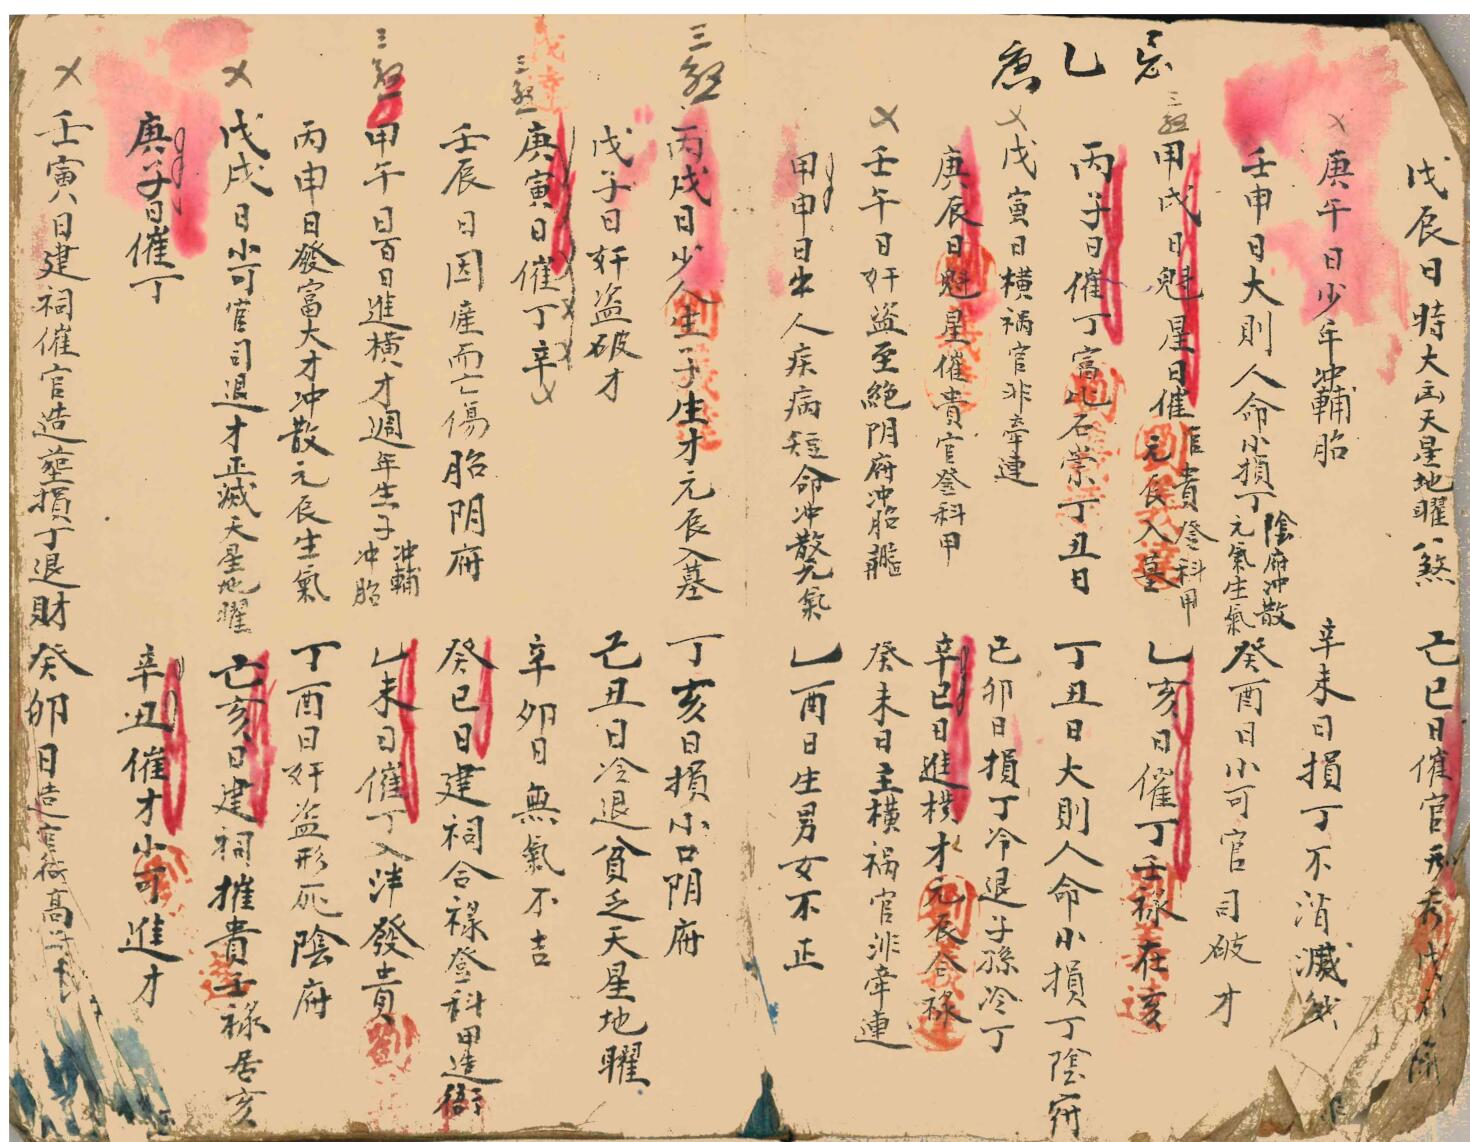 戊辰日時大凶天星地曜八煞
己巳日催官
庚午日少年冲輔胎
辛未日損丁不消滅
壬申日大則人命小損丁元氣生氣
陰府冲散
癸酉日小可官司破才
忌
乙
三煞
甲戌日魁星日催官貴登科甲
元辰入墓
乙亥日催丁壬禄在亥
丙子日催丁富比石崇丁丑日
丁丑日大則人命小損丁陰府
戊寅日橫禍官非牽連
己卯日損丁冷退子孫冷丁
庚辰日魁星催貴官登科甲
辛巳日進横才元辰合禄
壬午日奸盗至絕阴府冲胎
癸未日主横禍官非牽連
甲申日出人疾病短命冲散元氣
乙酉日生男女不正
三煞
丙戌日少人生子生才元辰入墓
丁亥日損小口阴府
戊子日奸盗破才
己丑日冷退貧乏天星地曜
三煞
庚寅日催丁辛
辛卯日無氣不吉
壬辰日因產而亡傷胎阴府
癸巳日建祠合禄登科甲造衙
三煞
甲午日百日進横才週年生子冲胎
冲輔
乙未日催丁入泮發貴
丙申日發富大才冲散元辰生氣
丁酉日奸盗形死陰府
戊戌日小可官司退才正滅天星地曜
己亥日建祠摧貴壬禄居亥
庚子日催丁
辛丑催才小可進才
壬寅日建祠催官造塟損丁退財
癸卯日造官衙高
劉義達